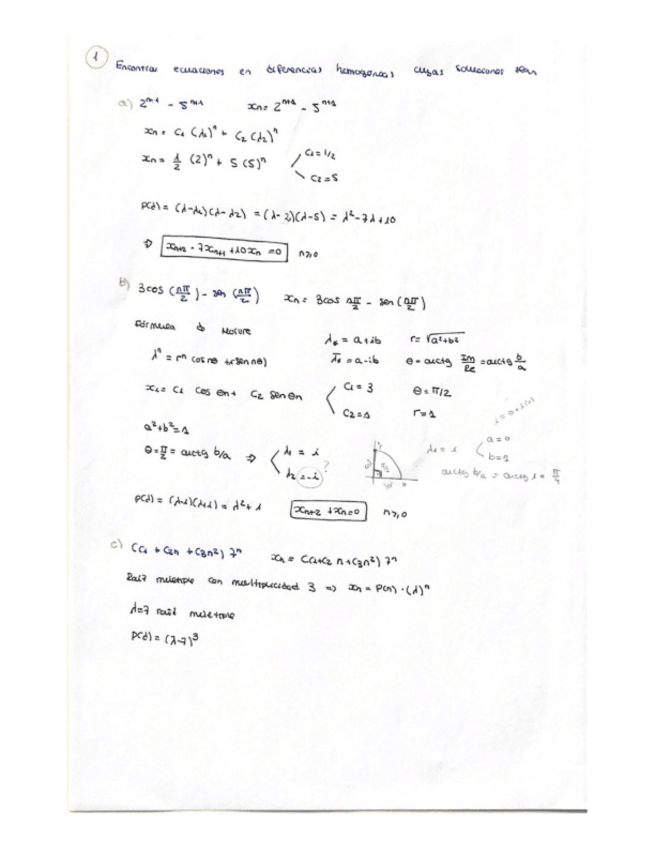 1
Encontrar ecuaciones en diferencias homogéneas cuyas soluciones sean
a) 2ⁿ⁻¹ - 5ⁿ⁺¹ xn = 2ⁿ⁺¹ - 5ⁿ⁺¹
xn = C1 (λ1)ⁿ + C2 (λ2)ⁿ
xn = 1/2 (2)ⁿ + 5 (5)ⁿ C1 = 1/2
C2 = 5
P(λ) = (λ-λ1)(λ-λ2) = (λ-2)(λ-5) = λ²-7λ+10
⇒ xn+2 - 7xn+1 + 10xn = 0 n≥0
b) 3cos (nπ/2) - sen (nπ/2) xn = 3cos nπ/2 - sen (nπ/2)
Fórmula de Moivre
λ1 = a+ib r = √a²+b²
λⁿ = rⁿ (cos nθ + i sen nθ) λ̄1 = a-ib θ = arctg Im/Re = arctg b/a
xn = C1 cos θn + C2 sen θn C1 = 3 θ = π/2
C2 = 1 r = 1
a²+b² = 1
θ = π/2 = arctg b/a ⇒ λ1 = i
λ2 = -i ?
λ1 = i a = 0
b = 1
arctg b/a = arctg 1 = π/4
P(λ) = (λ-i)(λ+i) = λ²+1 xn+2 + xn = 0 n≥0
c) (C1 + C2n + C3n²) 7ⁿ xn = (C1+C2 n+C3n²) 7ⁿ
Raíz múltiple con multiplicidad 3 ⇒ xn = P(n)·(λ)ⁿ
λ=7 raíz múltiple
P(λ) = (λ-7)³